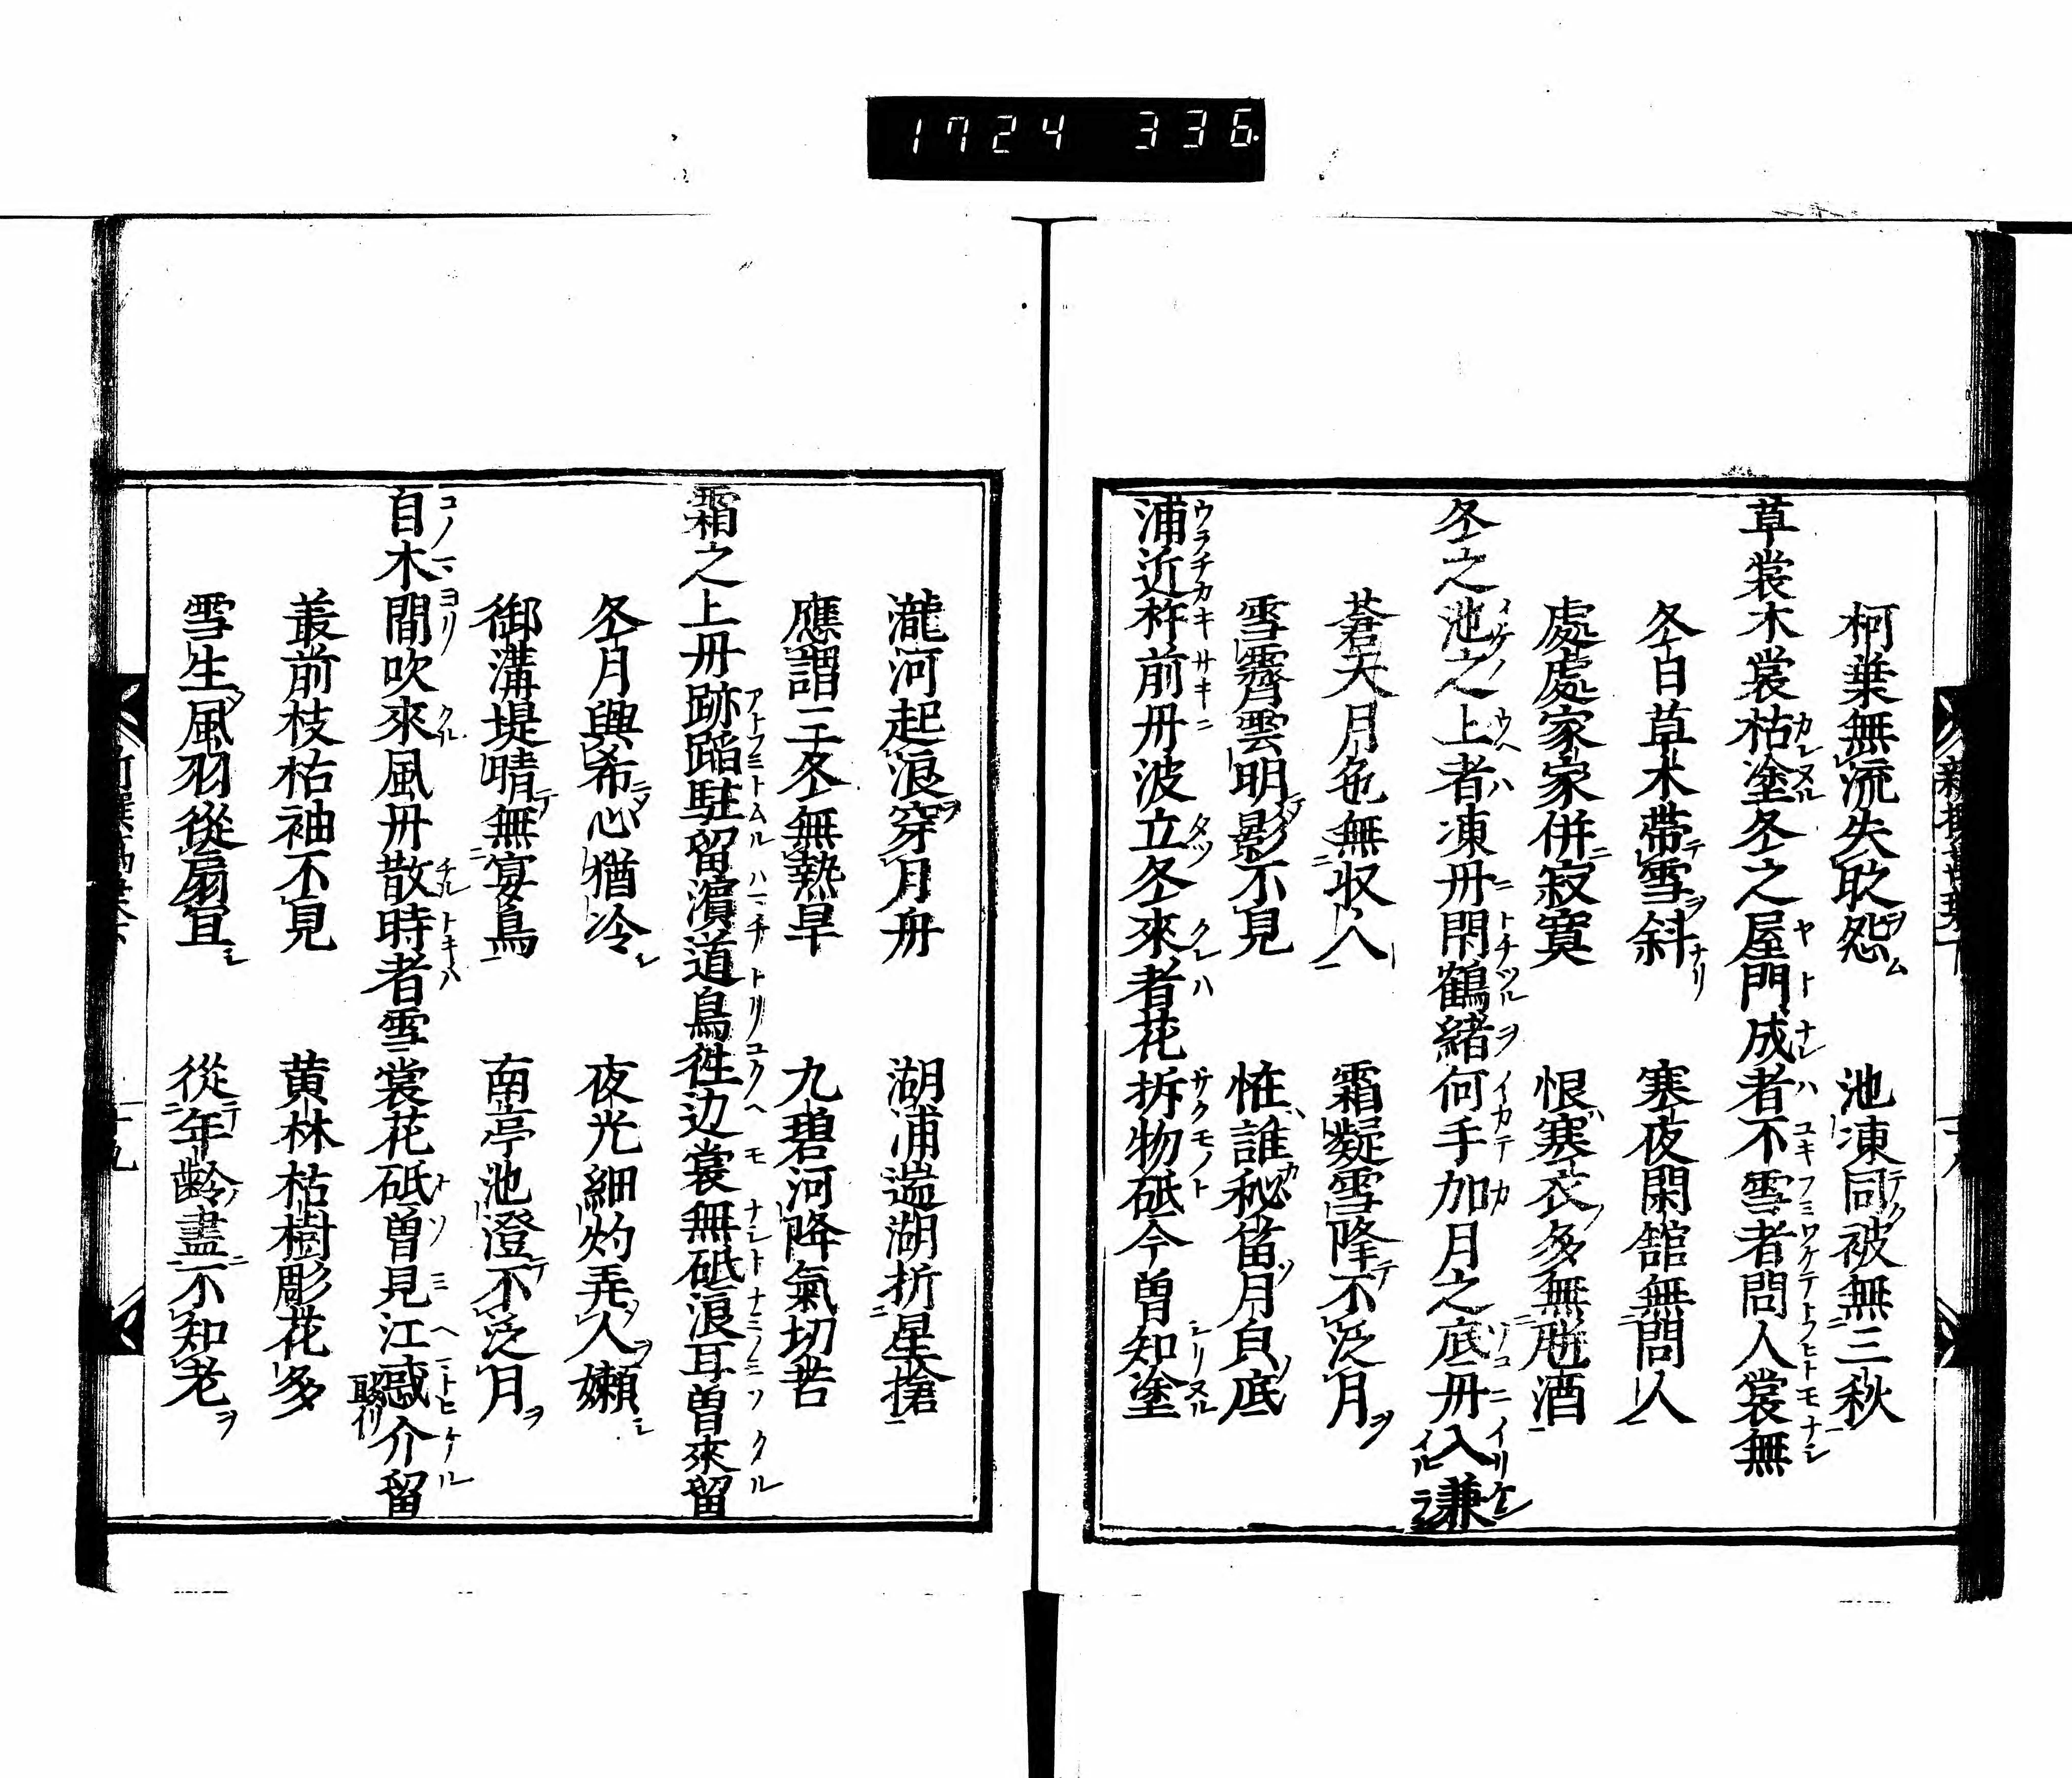 1724 336
柯葉無流失耿怨 池凍同被無三秋
草裳木裳枯塗冬之屋門成者不雪者問人裳無
冬日草木帯雪斜 寒夜閑舘無問人
處處家家併寂寞 恨寒衣多無酒
冬之池之上者凍丹閇鶴緒何手加月之底丹入謙
蒼天月色無収人 霜凝雪降不泛月
雪霽雲明影不見 恠誰秘畜月白底
浦近杵前丹波立冬來者花拆物砥今曽知塗
瀧河起浪穿月舟 湖浦遄湖折星
應謂三冬無熱早 九碧河降氣切苦
霜之上丹跡蹈駐留濱道鳥徃边裳無砥浪耳曽來留
冬月興希心猶冷 夜光細灼弄人嬾
御溝堤晴無宴鳥 南亭池澄不泛月
自木間吹來風丹散時者雪裳花砥曽見江介留
叢前枝枯袖不見 黄林枯樹彫花多
雪生風羽從扇冝 從年齡盡不知老